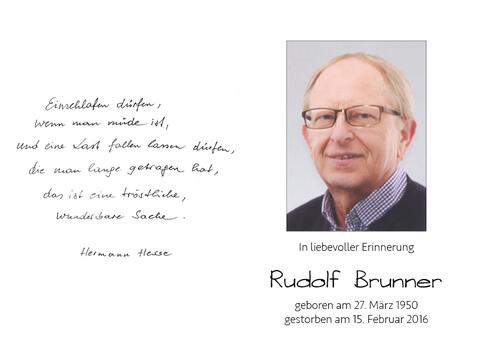 Einschlafen dürfen,
wenn man müde ist,
und eine Last fallen lassen dürfen,
die man lange getragen hat,
das ist eine tröstliche,
wunderbare Sache.
Hermann Hesse
In liebevoller Erinnerung
Rudolf Brunner
geboren am 27. März 1950
gestorben am 15. Februar 2016